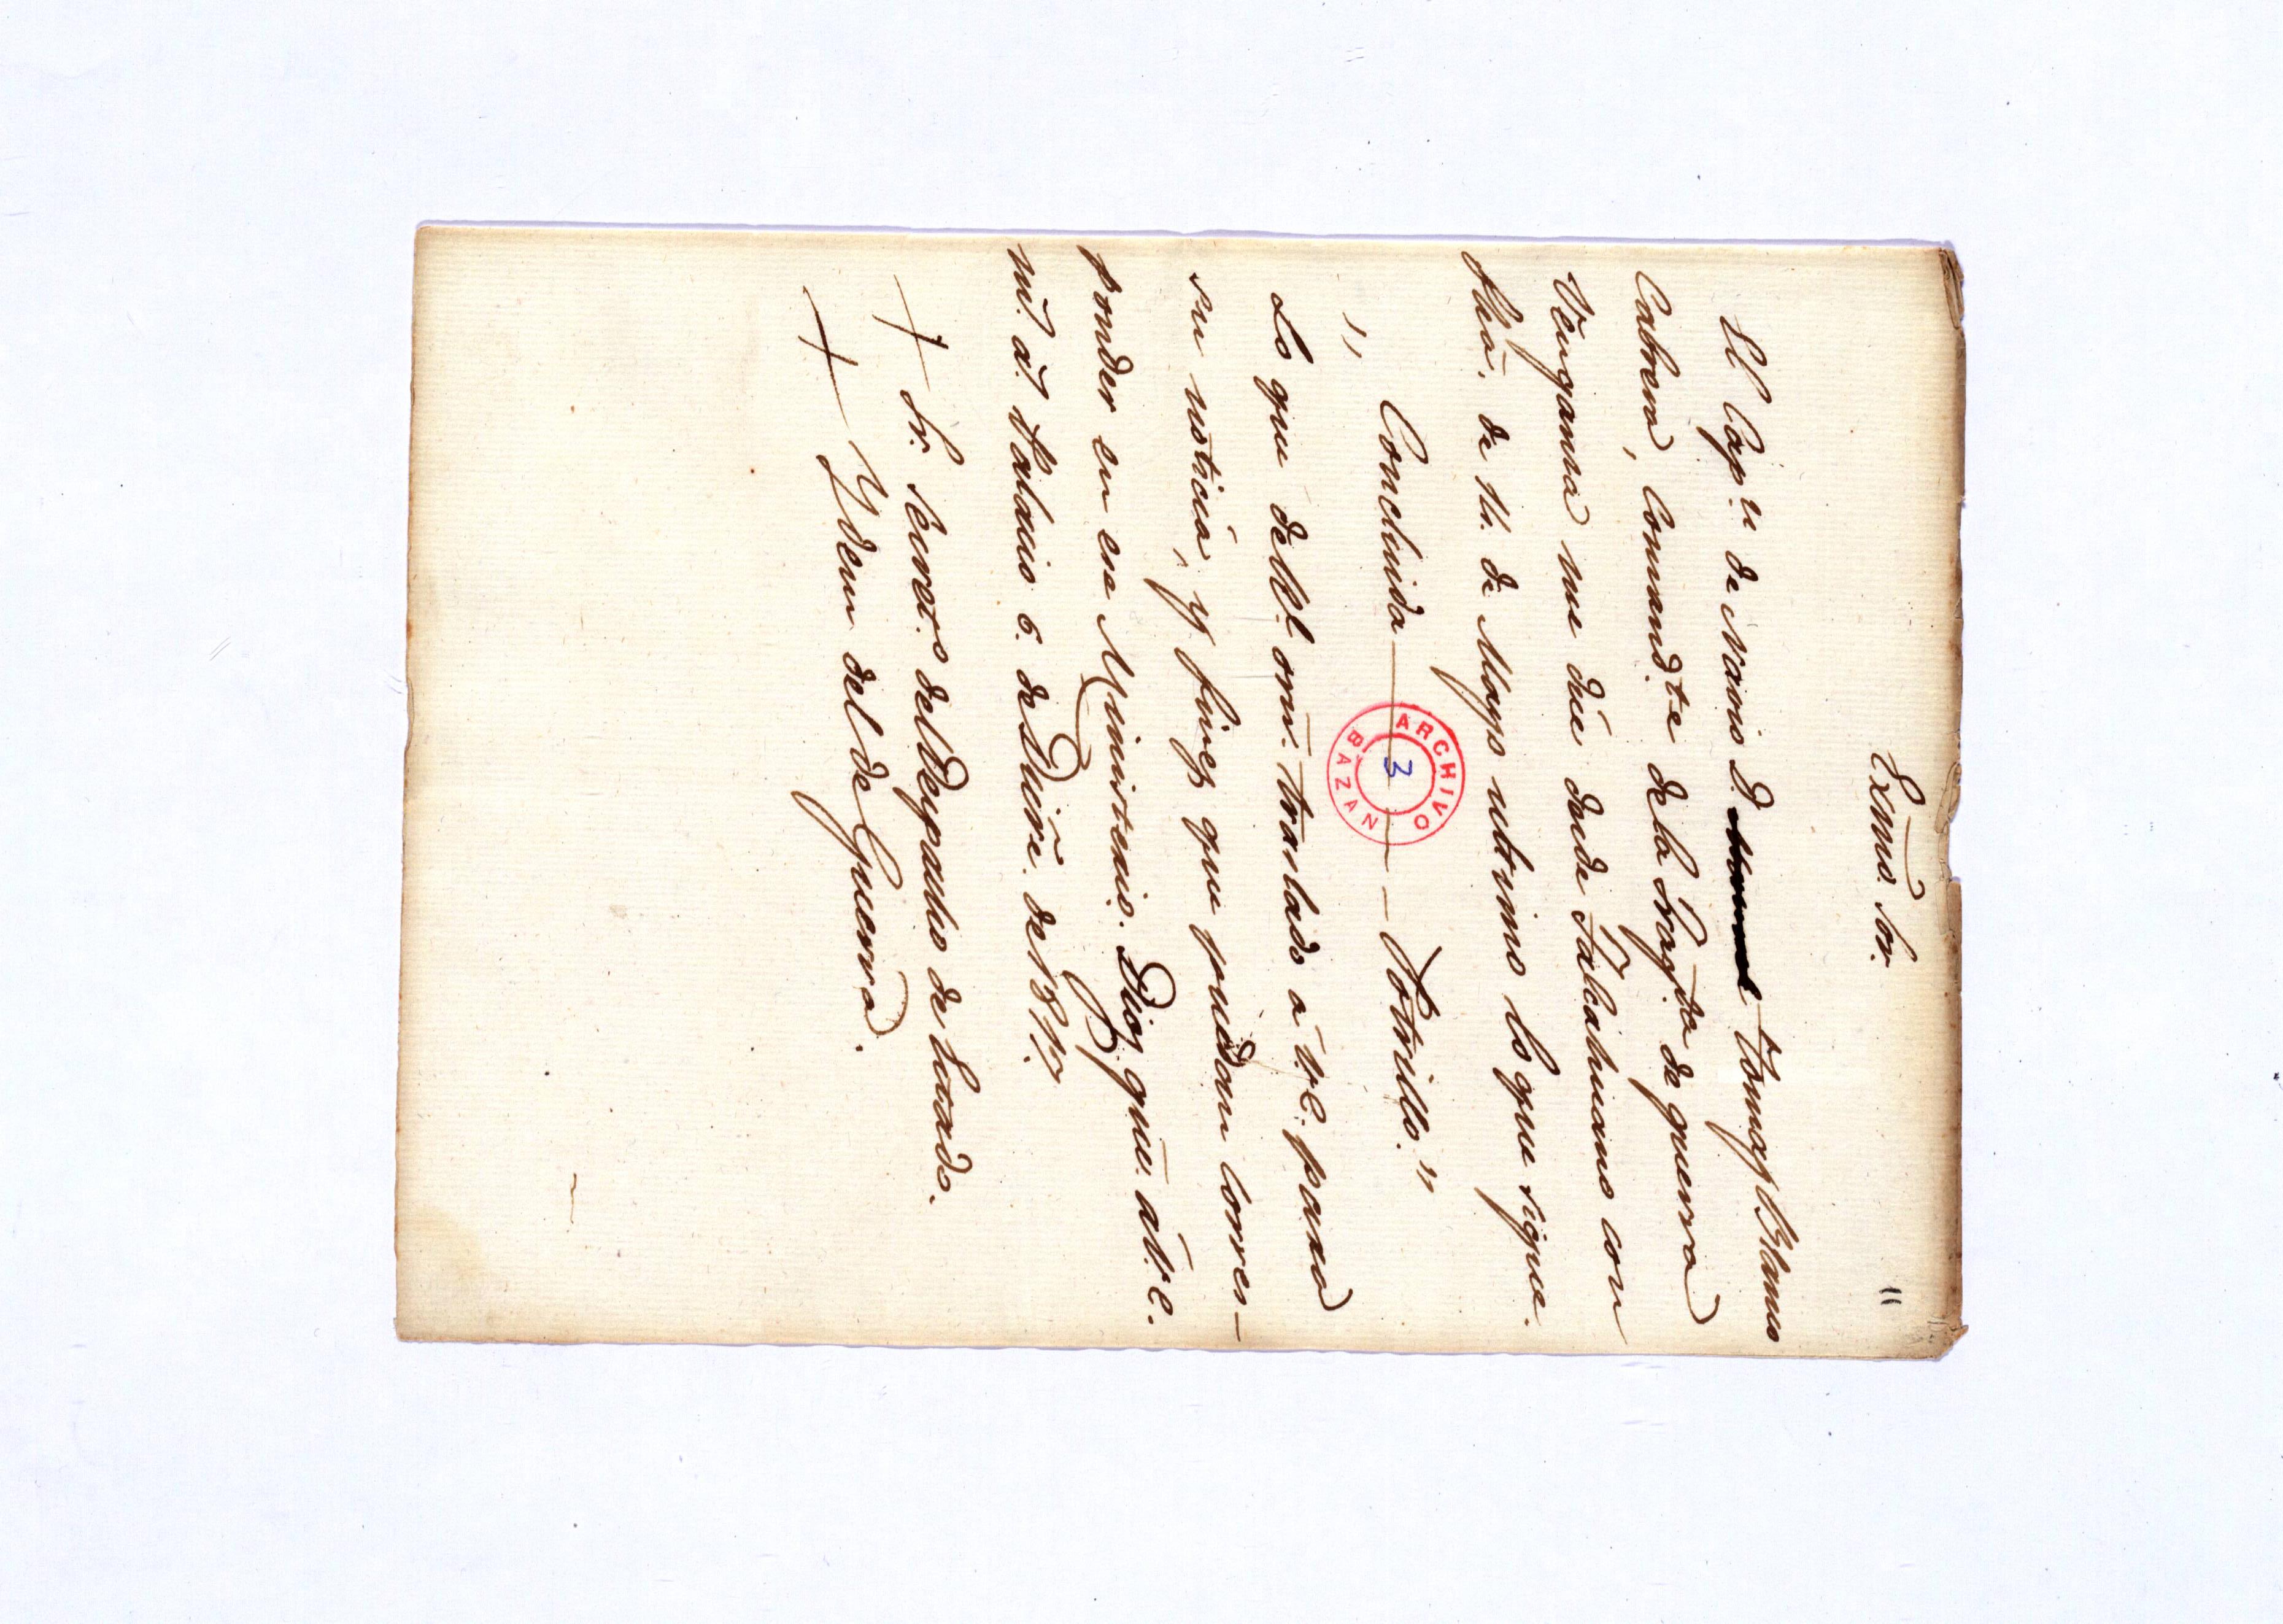 Exmo. Sor.
"
El Cap.n de Navio D. Tomas Blanco
Cabrera, Comand.te de la Frag.ta de guerra
Venganza me dice desde Talcahuano con
fha. de 11. de Mayo ultimo lo que sigue.
" Concluida — — — Potrillo."
Lo que de Rl. orn. traslado a V.E. para
su noticia, y fines que puedan corres-
ponder en ese Ministerio. Dios gue. a V.E.
m.s a.s Palacio 6. de Dicre. de 1817.
+ Sr. Secret.o del Despacho de Estado.
+ Ydem del de Guerra.
ARCHIVO BAZAN
3